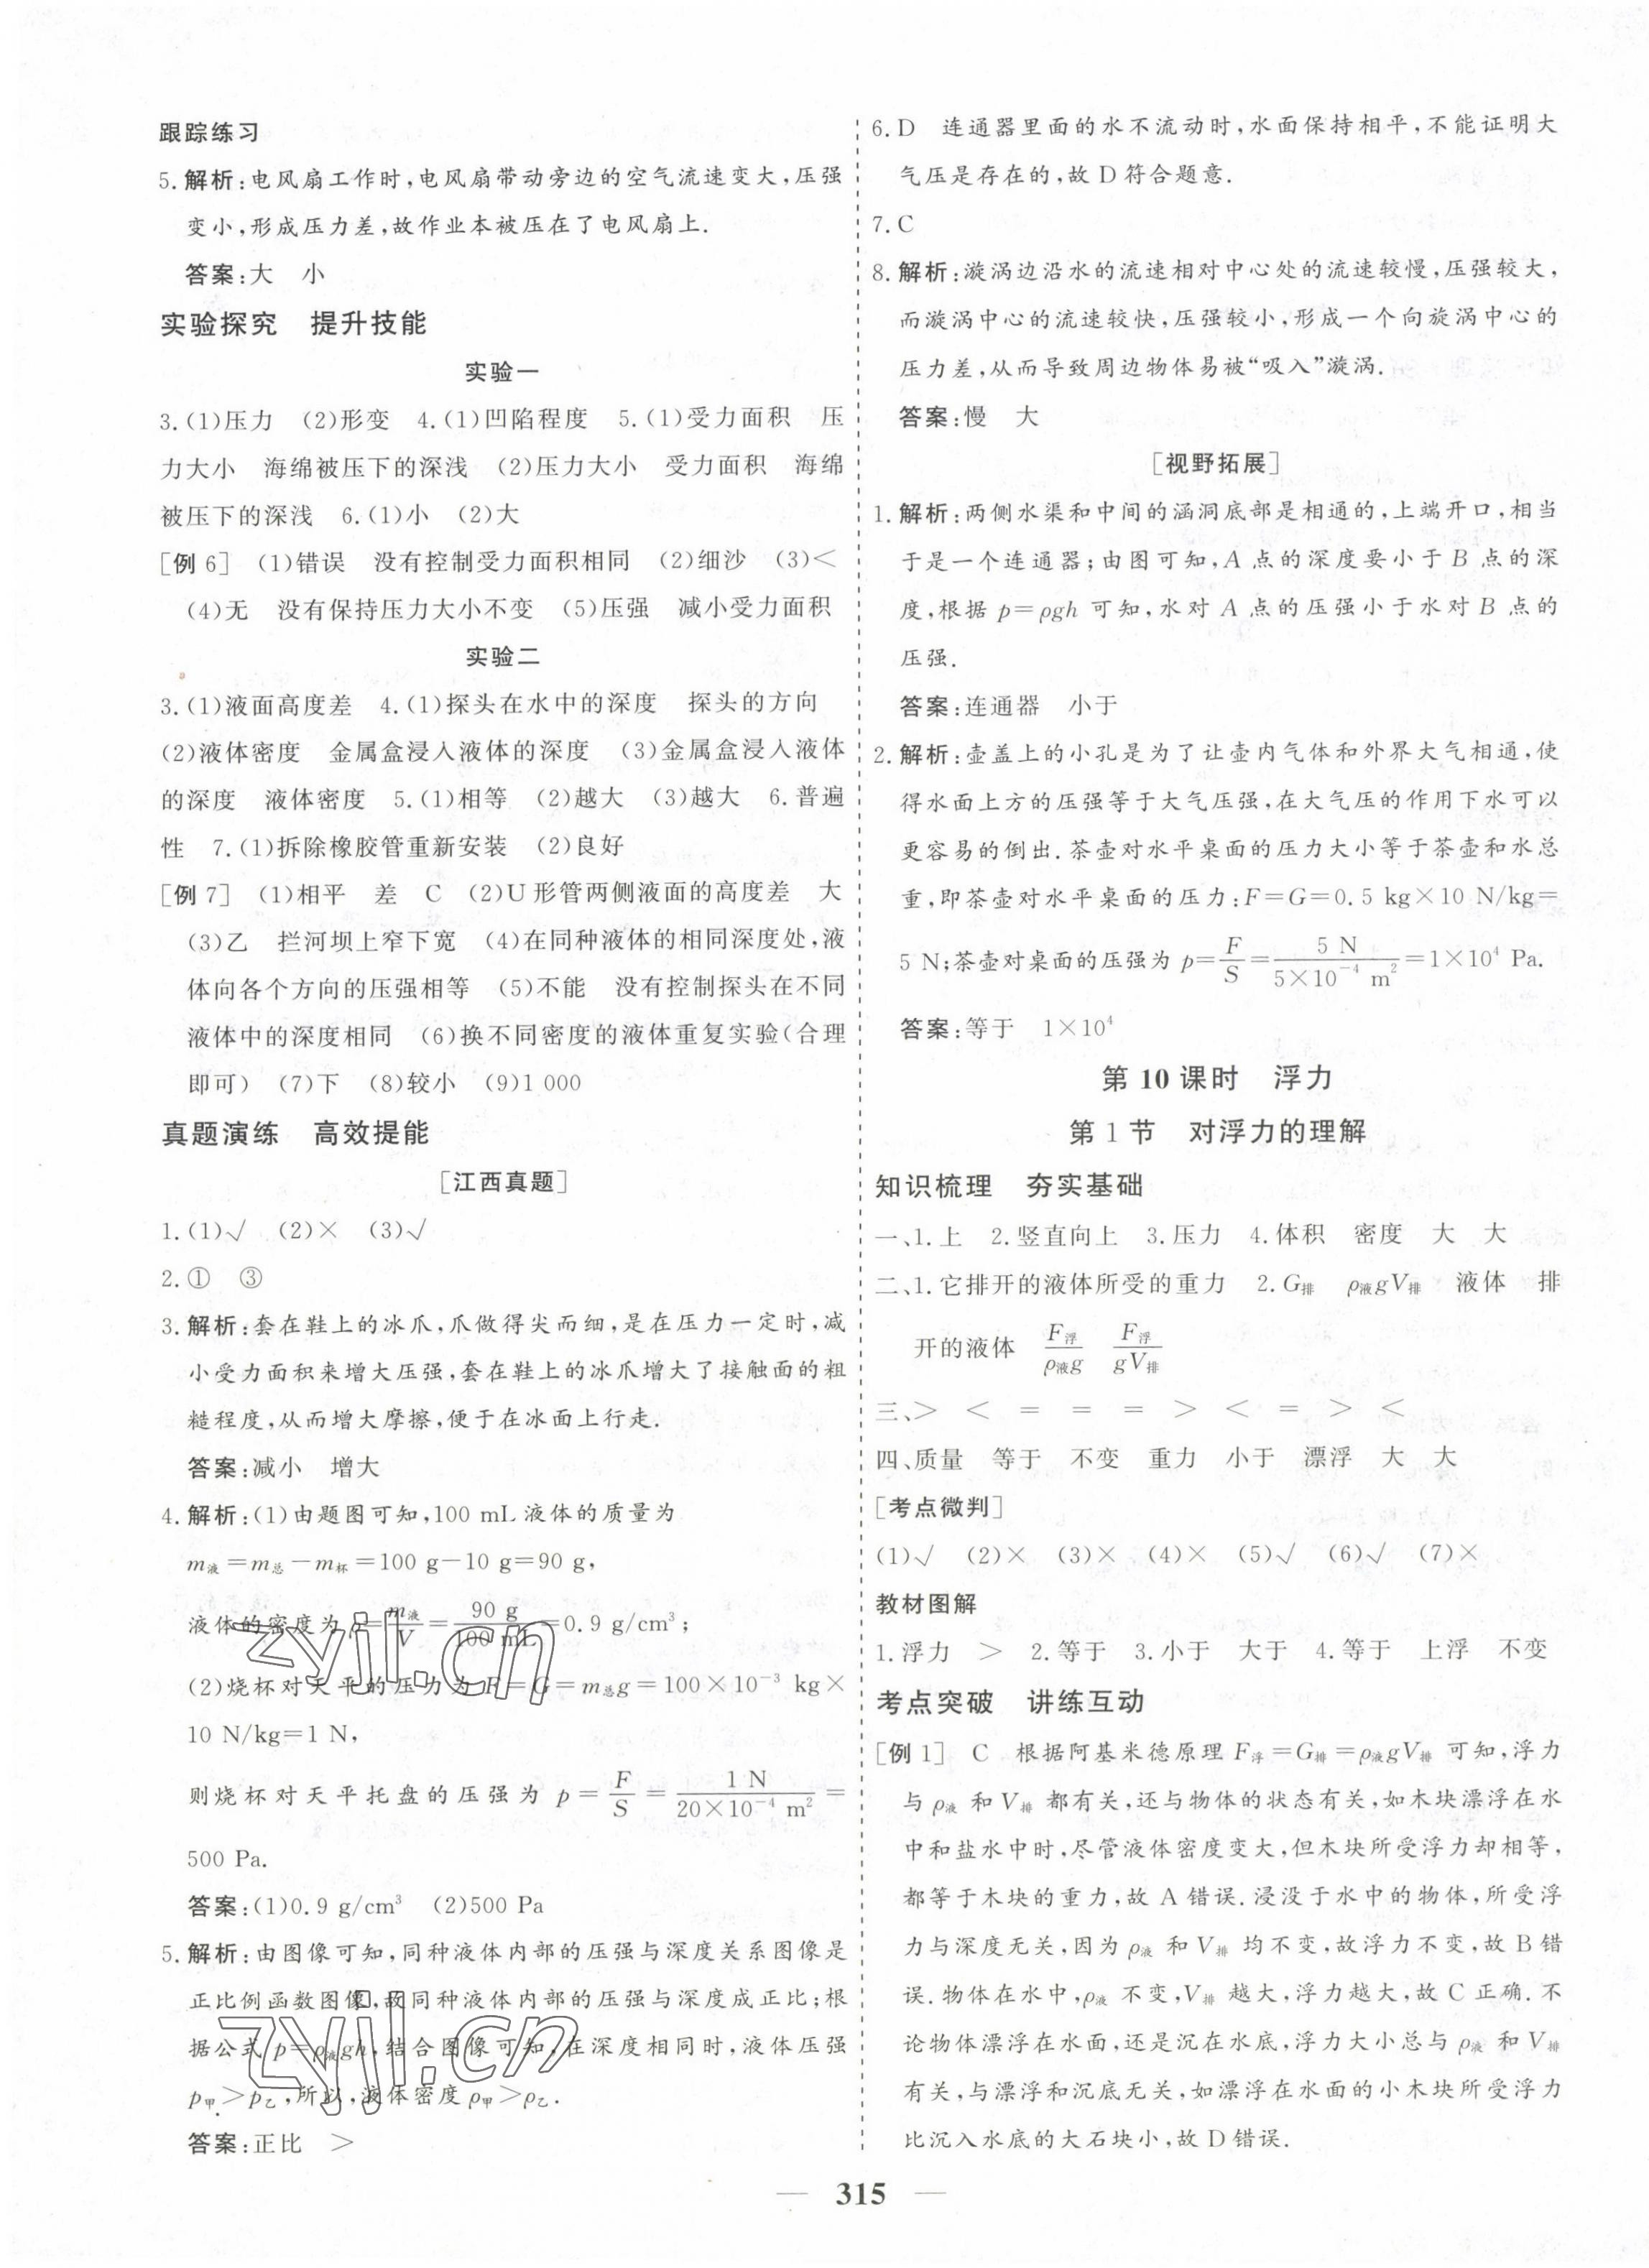 跟踪练习
5.解析:电风扇工作时,电风扇带动旁边的空气流速变大,压强
变小,形成压力差,故作业本被压在了电风扇上.
答案:大　小
实验探究　提升技能
实验一
3.(1)压力　(2)形变　4.(1)凹陷程度　5.(1)受力面积　压
力大小　海绵被压下的深浅　(2)压力大小　受力面积　海绵
被压下的深浅　6.(1)小　(2)大
[例6]　(1)错误　没有控制受力面积相同　(2)细沙　(3)<
(4)无　没有保持压力大小不变　(5)压强　减小受力面积
实验二
3.(1)液面高度差　4.(1)探头在水中的深度　探头的方向
(2)液体密度　金属盒浸入液体的深度　(3)金属盒浸入液体
的深度　液体密度　5.(1)相等　(2)越大　(3)越大　6.普遍
性　7.(1)拆除橡胶管重新安装　(2)良好
[例7]　(1)相平　差　C　(2)U形管两侧液面的高度差　大
(3)乙　拦河坝上窄下宽　(4)在同种液体的相同深度处,液
体向各个方向的压强相等　(5)不能　没有控制探头在不同
液体中的深度相同　(6)换不同密度的液体重复实验(合理
即可)　(7)下　(8)较小　(9)1 000
真题演练　高效提能
[江西真题]
1.(1)√　(2)×　(3)√
2.①　③
3.解析:套在鞋上的冰爪,爪做得尖而细,是在压力一定时,减
小受力面积来增大压强,套在鞋上的冰爪增大了接触面的粗
糙程度,从而增大摩擦,便于在冰面上行走.
答案:减小　增大
4.解析:(1)由题图可知,100 mL液体的质量为
m液=m总-m杯=100 g-10 g=90 g,
液体的密度为ρ=m液/V=90 g/100 mL=0.9 g/cm³;
(2)烧杯对天平的压力为F=G=m总g=100×10⁻³ kg×
10 N/kg=1 N,
则烧杯对天平托盘的压强为p=F/S=1 N/20×10⁻⁴ m²=
500 Pa.
答案:(1)0.9 g/cm³　(2)500 Pa
5.解析:由图像可知,同种液体内部的压强与深度关系图像是
正比例函数图像,故同种液体内部的压强与深度成正比;根
据公式p=ρ液gh,结合图像可知,在深度相同时,液体压强
p甲>p乙,所以,液体密度ρ甲>ρ乙.
答案:正比　>
6.D　连通器里面的水不流动时,水面保持相平,不能证明大
气压是存在的,故D符合题意.
7.C
8.解析:漩涡边沿水的流速相对中心处的流速较慢,压强较大,
而漩涡中心的流速较快,压强较小,形成一个向旋涡中心的
压力差,从而导致周边物体易被“吸入”漩涡.
答案:慢　大
[视野拓展]
1.解析:两侧水渠和中间的涵洞底部是相通的,上端开口,相当
于是一个连通器;由图可知,A点的深度要小于B点的深
度,根据p=ρgh可知,水对A点的压强小于水对B点的
压强.
答案:连通器　小于
2.解析:壶盖上的小孔是为了让壶内气体和外界大气相通,使
得水面上方的压强等于大气压强,在大气压的作用下水可以
更容易的倒出.茶壶对水平桌面的压力大小等于茶壶和水总
重,即茶壶对水平桌面的压力:F=G=0.5 kg×10 N/kg=
5 N;茶壶对桌面的压强为p=F/S=5 N/5×10⁻⁴ m²=1×10⁴ Pa.
答案:等于　1×10⁴
第10课时　浮力
第1节　对浮力的理解
知识梳理　夯实基础
一、1.上　2.竖直向上　3.压力　4.体积　密度　大　大
二、1.它排开的液体所受的重力　2.G排　ρ液gV排　液体　排
开的液体　F浮/ρ液g　F浮/gV排
三、>　<　=　=　=　>　<　=　>　<
四、质量　等于　不变　重力　小于　漂浮　大　大
[考点微判]
(1)√　(2)×　(3)×　(4)×　(5)√　(6)√　(7)×
教材图解
1.浮力　>　2.等于　3.小于　大于　4.等于　上浮　不变
考点突破　讲练互动
[例1]　C　根据阿基米德原理F浮=G排=ρ液gV排可知,浮力
与ρ液和V排都有关,还与物体的状态有关,如木块漂浮在水
中和盐水中时,尽管液体密度变大,但木块所受浮力却相等,
都等于木块的重力,故A错误.浸没于水中的物体,所受浮
力与深度无关,因为ρ液和V排均不变,故浮力不变,故B错
误.物体在水中,ρ液不变,V排越大,浮力越大,故C正确.不
论物体漂浮在水面,还是沉在水底,浮力大小总与ρ液和V排
有关,与漂浮和沉底无关,如漂浮在水面的小木块所受浮力
比沉入水底的大石块小,故D错误.
315
zyjl.cn
zyjl.cn